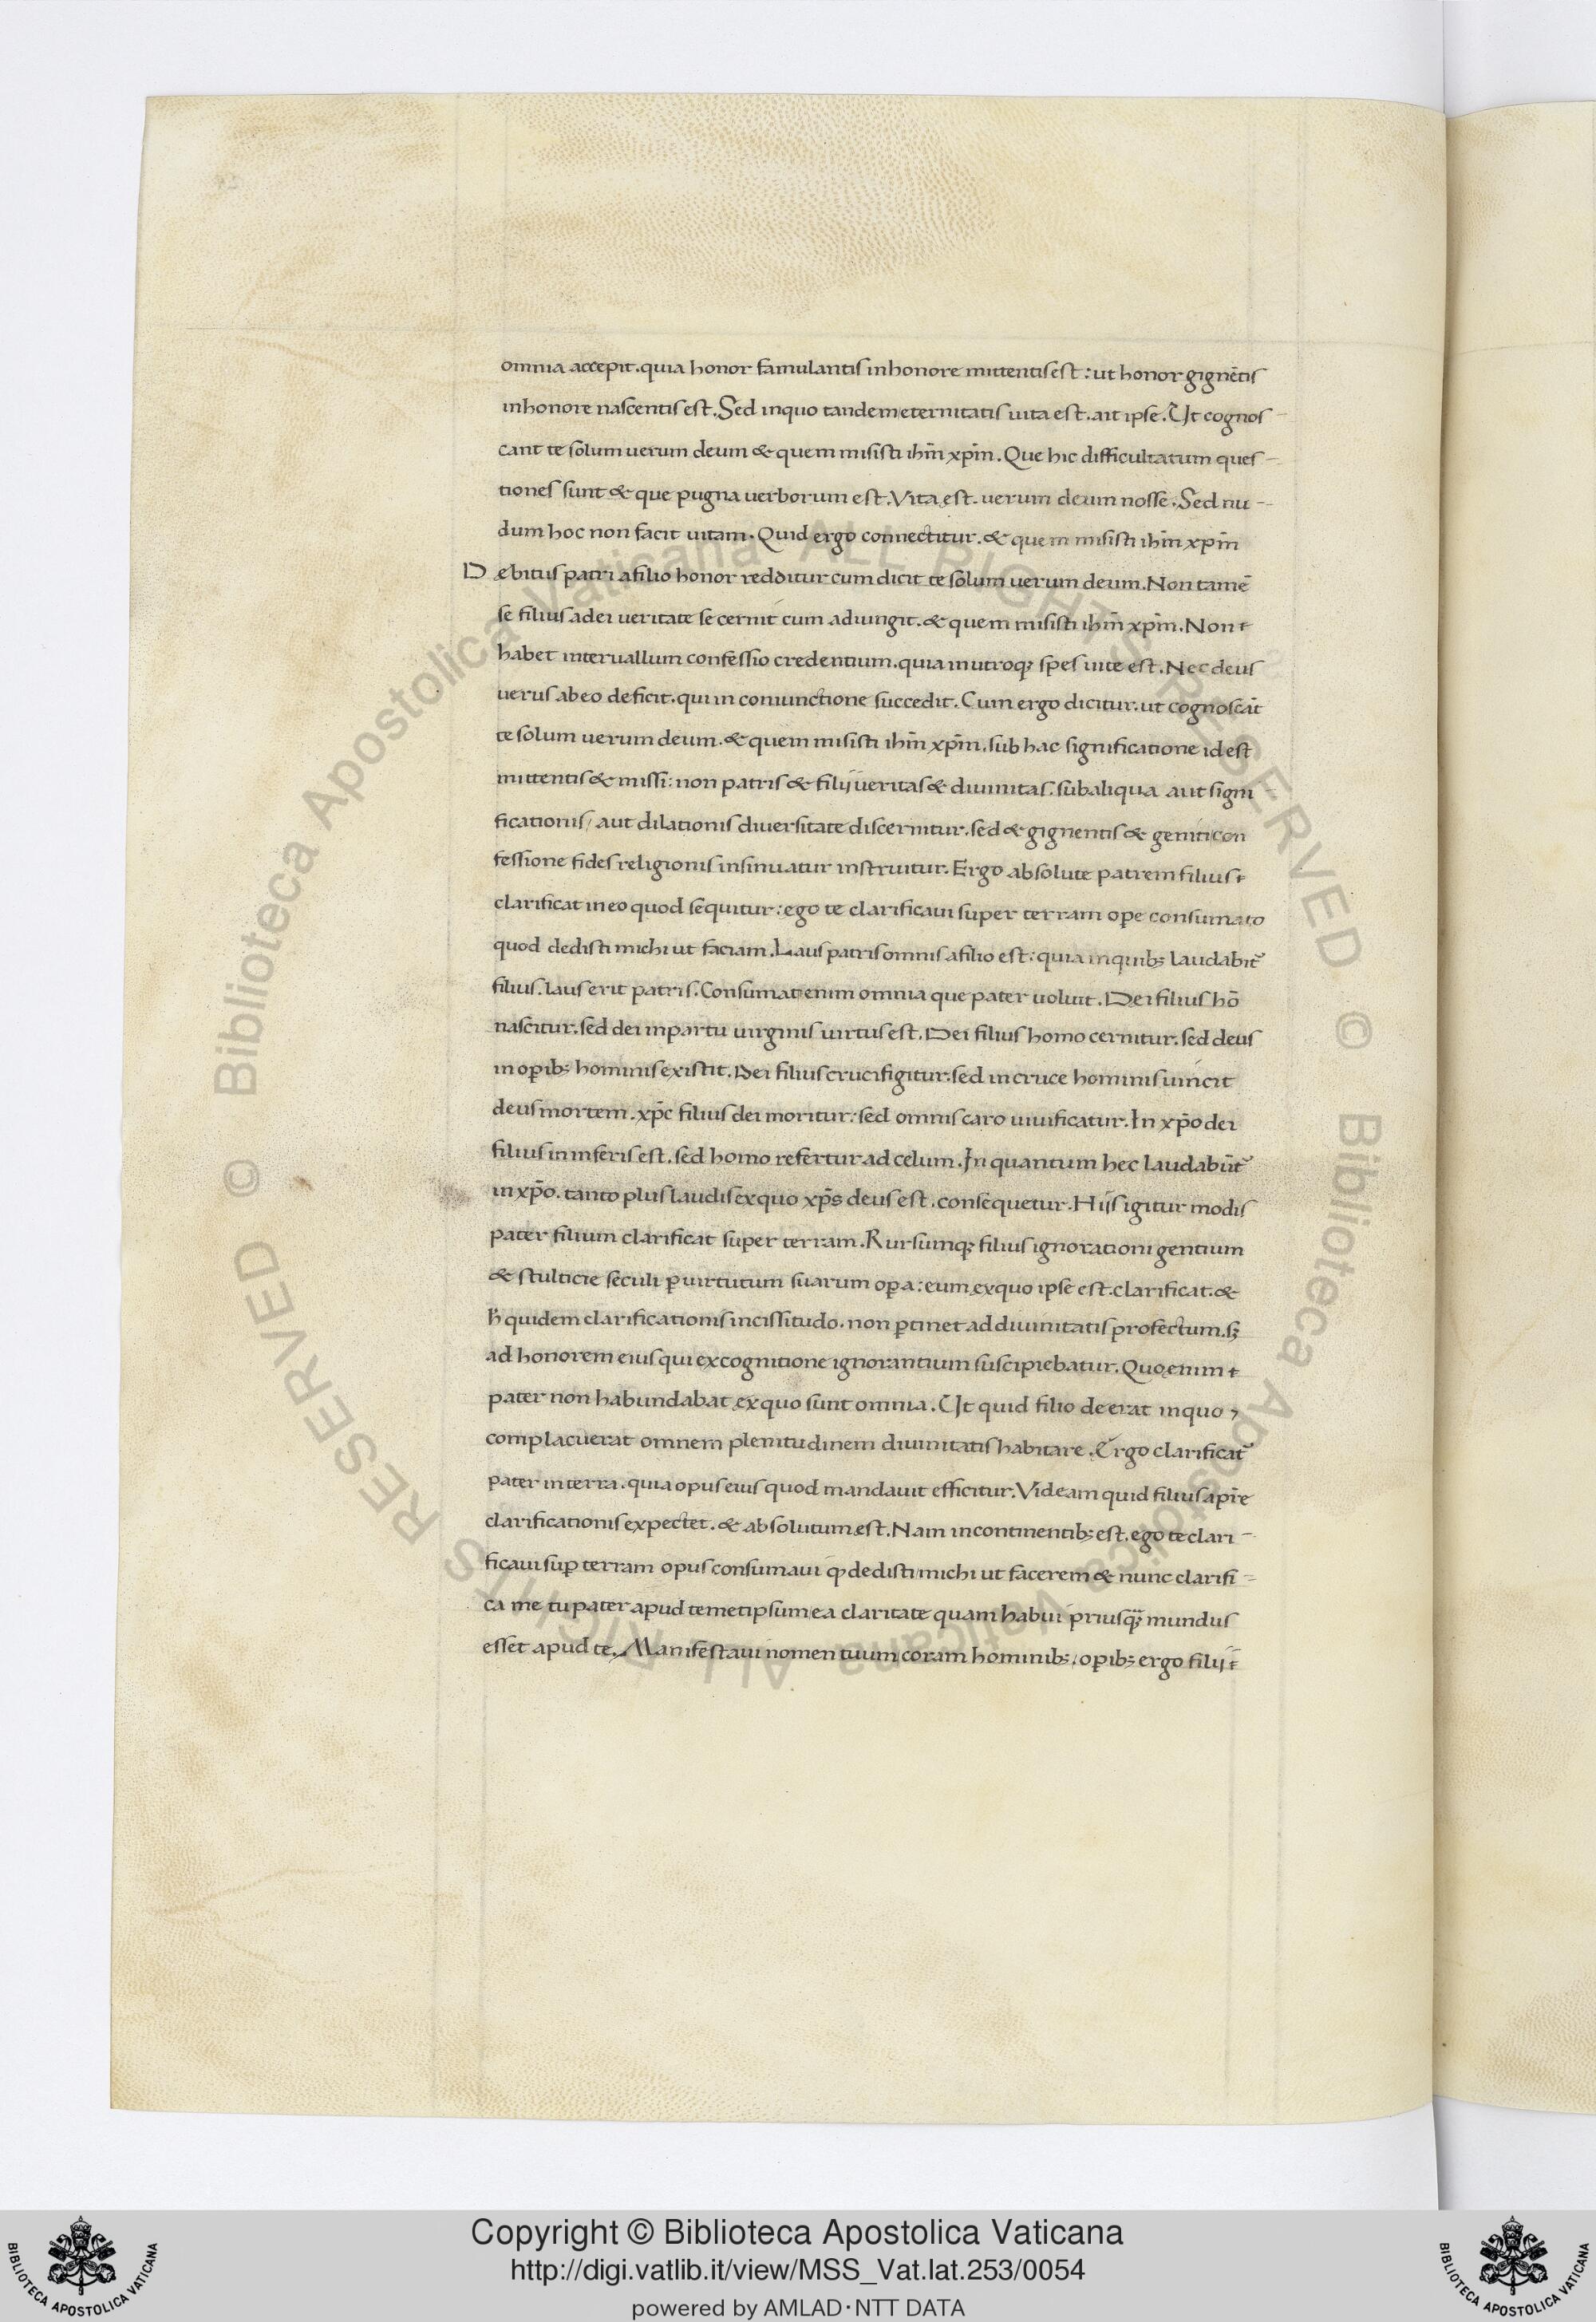 omnia accepit. quia honor famulantis in honore mittentis est: ut honor gignētis
in honore nascentis est. Sed in quo tandem eternitatis uita est. ait ipse. Ut cognos-
cant te solum uerum deum & quem misisti ihm̄ xpm̄. Que hic difficultatum ques-
tiones sunt & que pugna uerborum est. Vita est. uerum deum nosse. Sed nu-
dum hoc non facit uitam. Quid ergo connectitur. & quem misisti ihm̄ xpm̄
Debitus patri a filio honor redditur cum dicit te solum uerum deum. Non tamē
se filius a dei ueritate secernit cum adiungit. & quem misisti ihm̄ xpm̄. Non
habet interuallum confessio credentium. quia in utroqꝫ spes uite est. Nec deus
uerus ab eo deficit. qui in coniunctione succedit. Cum ergo dicitur. ut cognoscāt
te solum uerum deum. & quem misisti ihm̄ xpm̄. sub hac significatione id est
mittentis & missi: non patris & filij ueritas & diuinitas. sub aliqua aut signi-
ficationis/ aut dilationis diuersitate discernitur. sed & gignentis & geniti con
fessione fides religionis insinuatur instruitur. Ergo absolute patrem filius
clarificat in eo quod sequitur: ego te clarificaui super terram ope consumato
quod dedisti michi ut faciam. Laus patris omnis a filio est: quia in quibꝫ laudabit᷑
filius. laus erit patris. Consumat enim omnia que pater uoluit. Dei filius hō
nascitur. sed dei in partu uirginis uirtus est. Dei filius homo cernitur. sed deus
in oꝑibꝫ hominis existit. Dei filius crucifigitur. sed in cruce hominis uincit
deus mortem. xp̄c filius dei moritur: sed omnis caro uiuificatur. In xp̄o dei
filius in inferis est. sed homo refertur ad celum. In quantum hec laudabūt᷑
in xp̄o. tanto plus laudis ex quo xp̄s deus est. consequetur. Hijs igitur modis
pater filium clarificat super terram. Rursumqꝫ filius ignorationi gentium
& stulticie seculi ꝑ uirtutum suarum oꝑa: eum ex quo ipse est. clarificat. &
h̄ quidem clarificationis incissitudo. non ꝑtinet ad diuinitatis profectum. sꝫ
ad honorem eius qui ex cognitione ignorantium suscipiebatur. Quo enim
pater non habundabat ex quo sunt omnia. Ut quid filio deerat in quo
complacuerat omnem plenitudinem diuinitatis habitare. Ergo clarificat᷑
pater in terra. quia opus eius quod mandauit efficitur. Videam quid filius a pr̄e
clarificationis expectet. & absolutum est. Nam in continentibꝫ est. ego te clari-
ficaui suꝑ terram opus consumaui ꝙ dedisti michi ut facerem & nunc clarifi-
ca me tu pater apud temetipsum ea claritate quam habui priusqꝫ mundus
esset apud te. Manifestaui nomen tuum coram hominibꝫ. oꝑibꝫ ergo filij
Copyright © Biblioteca Apostolica Vaticana
http://digi.vatlib.it/view/MSS_Vat.lat.253/0054
powered by AMLAD·NTT DATA
BIBLIOTECA APOSTOLICA VATICANA
BIBLIOTECA APOSTOLICA VATICANA
© Biblioteca Apostolica Vaticana ALL RIGHTS RESERVED
© Biblioteca Apostolica Vaticana ALL RIGHTS RESERVED